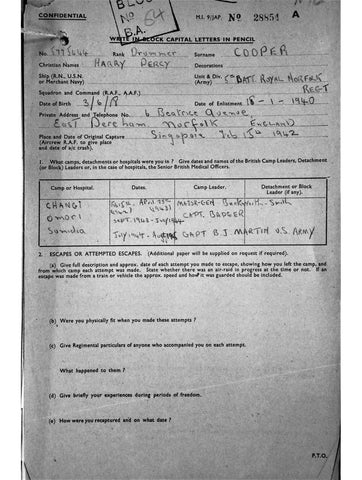 BLOCK
No 64
B.A.
CONFIDENTIAL
M.I. 9/JAP. No 28851 A
WRITE IN BLOCK CAPITAL LETTERS IN PENCIL
No. 5775644 Rank Drummer Surname COOPER
Christian Names HARRY PERCY Decorations
Ship (R.N., U.S.N. or Merchant Navy) Unit & Div. (Army) 5th BATT ROYAL NORFOLK REGT
Squadron and Command (R.A.F., A.A.F.)
Date of Birth 3/6/19 Date of Enlistment 18-1-1940
Private Address and Telephone No. 6 Beatrice Avenue,
East Dereham, Norfolk ENGLAND
Place and Date of Original Capture Singapore Feb 15th 1942
(Aircrew R.A.F. to give place and date of a/c crash).
1. What camps, detachments or hospitals were you in? Give dates and names of the British Camp Leaders, Detachment (or Block) Leaders or, in case of hospitals, the Senior British Medical Officers.
Camp or Hospital. Dates. Camp Leader. Detachment or Block Leader (if any).
CHANGI MAJOR-GEN Smith
Omori SEPT. 1943-July 1944 CAPT. BADGER
Sumidia July 1944- CAPT B J MARTIN U.S. ARMY
2. ESCAPES OR ATTEMPTED ESCAPES. (Additional paper will be supplied on request if required).
(a) Give full description and approx. date of each attempt you made to escape, showing how you left the camp, and from which camp each attempt was made. State whether there was an air-raid in progress at the time or not. If an escape was made from a train or vehicle the approx. speed and how it was guarded should be included.
(b) Were you physically fit when you made these attempts ?
(c) Give Regimental particulars of anyone who accompanied you on each attempt.
What happened to them ?
(d) Give briefly your experiences during periods of freedom.
(e) How were you recaptured and on what date ?
P.T.O.